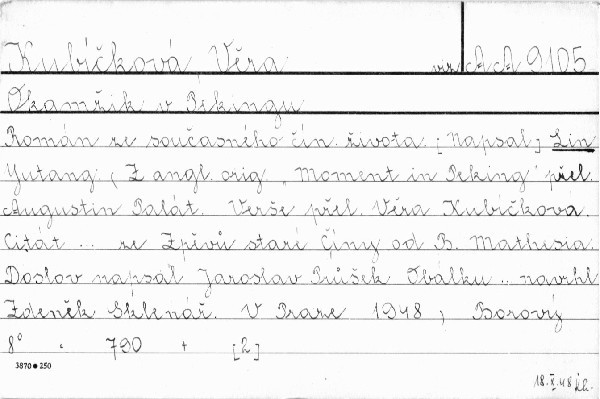 Kubíčková Věra viz AA 9105
Okamžik v Pekingu
Román ze současného čín. života. [Napsal] Lin
Yutang. (Z angl. orig. „Moment in Peking" přel.
Augustin Palát. Verše přel. Věra Kubíčkova.
Citát .. ze Zpěvů staré Číny od B. Mathesia.
Doslov napsál Jaroslav Průšek Obálku .. navrhl
Zdeněk Sklenář. V Praze 1948, Borový
8° . 790 + [2]
3870 ● 250
18.X.48